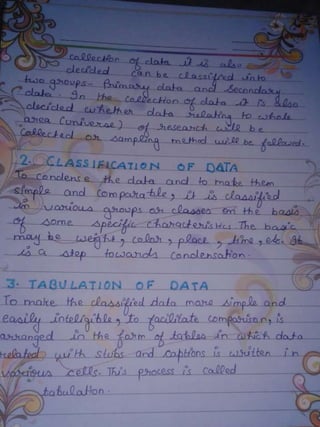 collection of data it is also
decided can be classified into
two groups- Primary data and Secondary
data. In the collection of data it is also
decided whether data relating to whole
area (universe) of research will be
collected or sampling method will be followed.
2. CLASSIFICATION OF DATA
To condense the data and to make them
simple and comparable, it is classified
in various groups or classes on the basis
of some specific characteristics. The basic
may be weight, color, place, time, etc. It
is a step towards condensation.
3. TABULATION OF DATA
To make the classified data more simple and
easily inteligible, to facilitate comparison, is
arranged in the form of tables in which data
related with stubs and captions is written in
various cells. This process is called
tabulation.